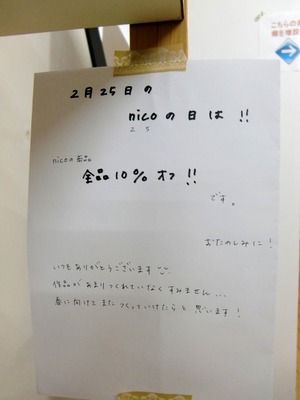 こちらの
2月25日の
nicoの日は!!
2 5
nicoの商品
全品10%オフ!!
です。
おたのしみに!
いつもありがとうございます
作品があまりつくれていなくすみません...
春に向けてまたつくっていけたらと思います!